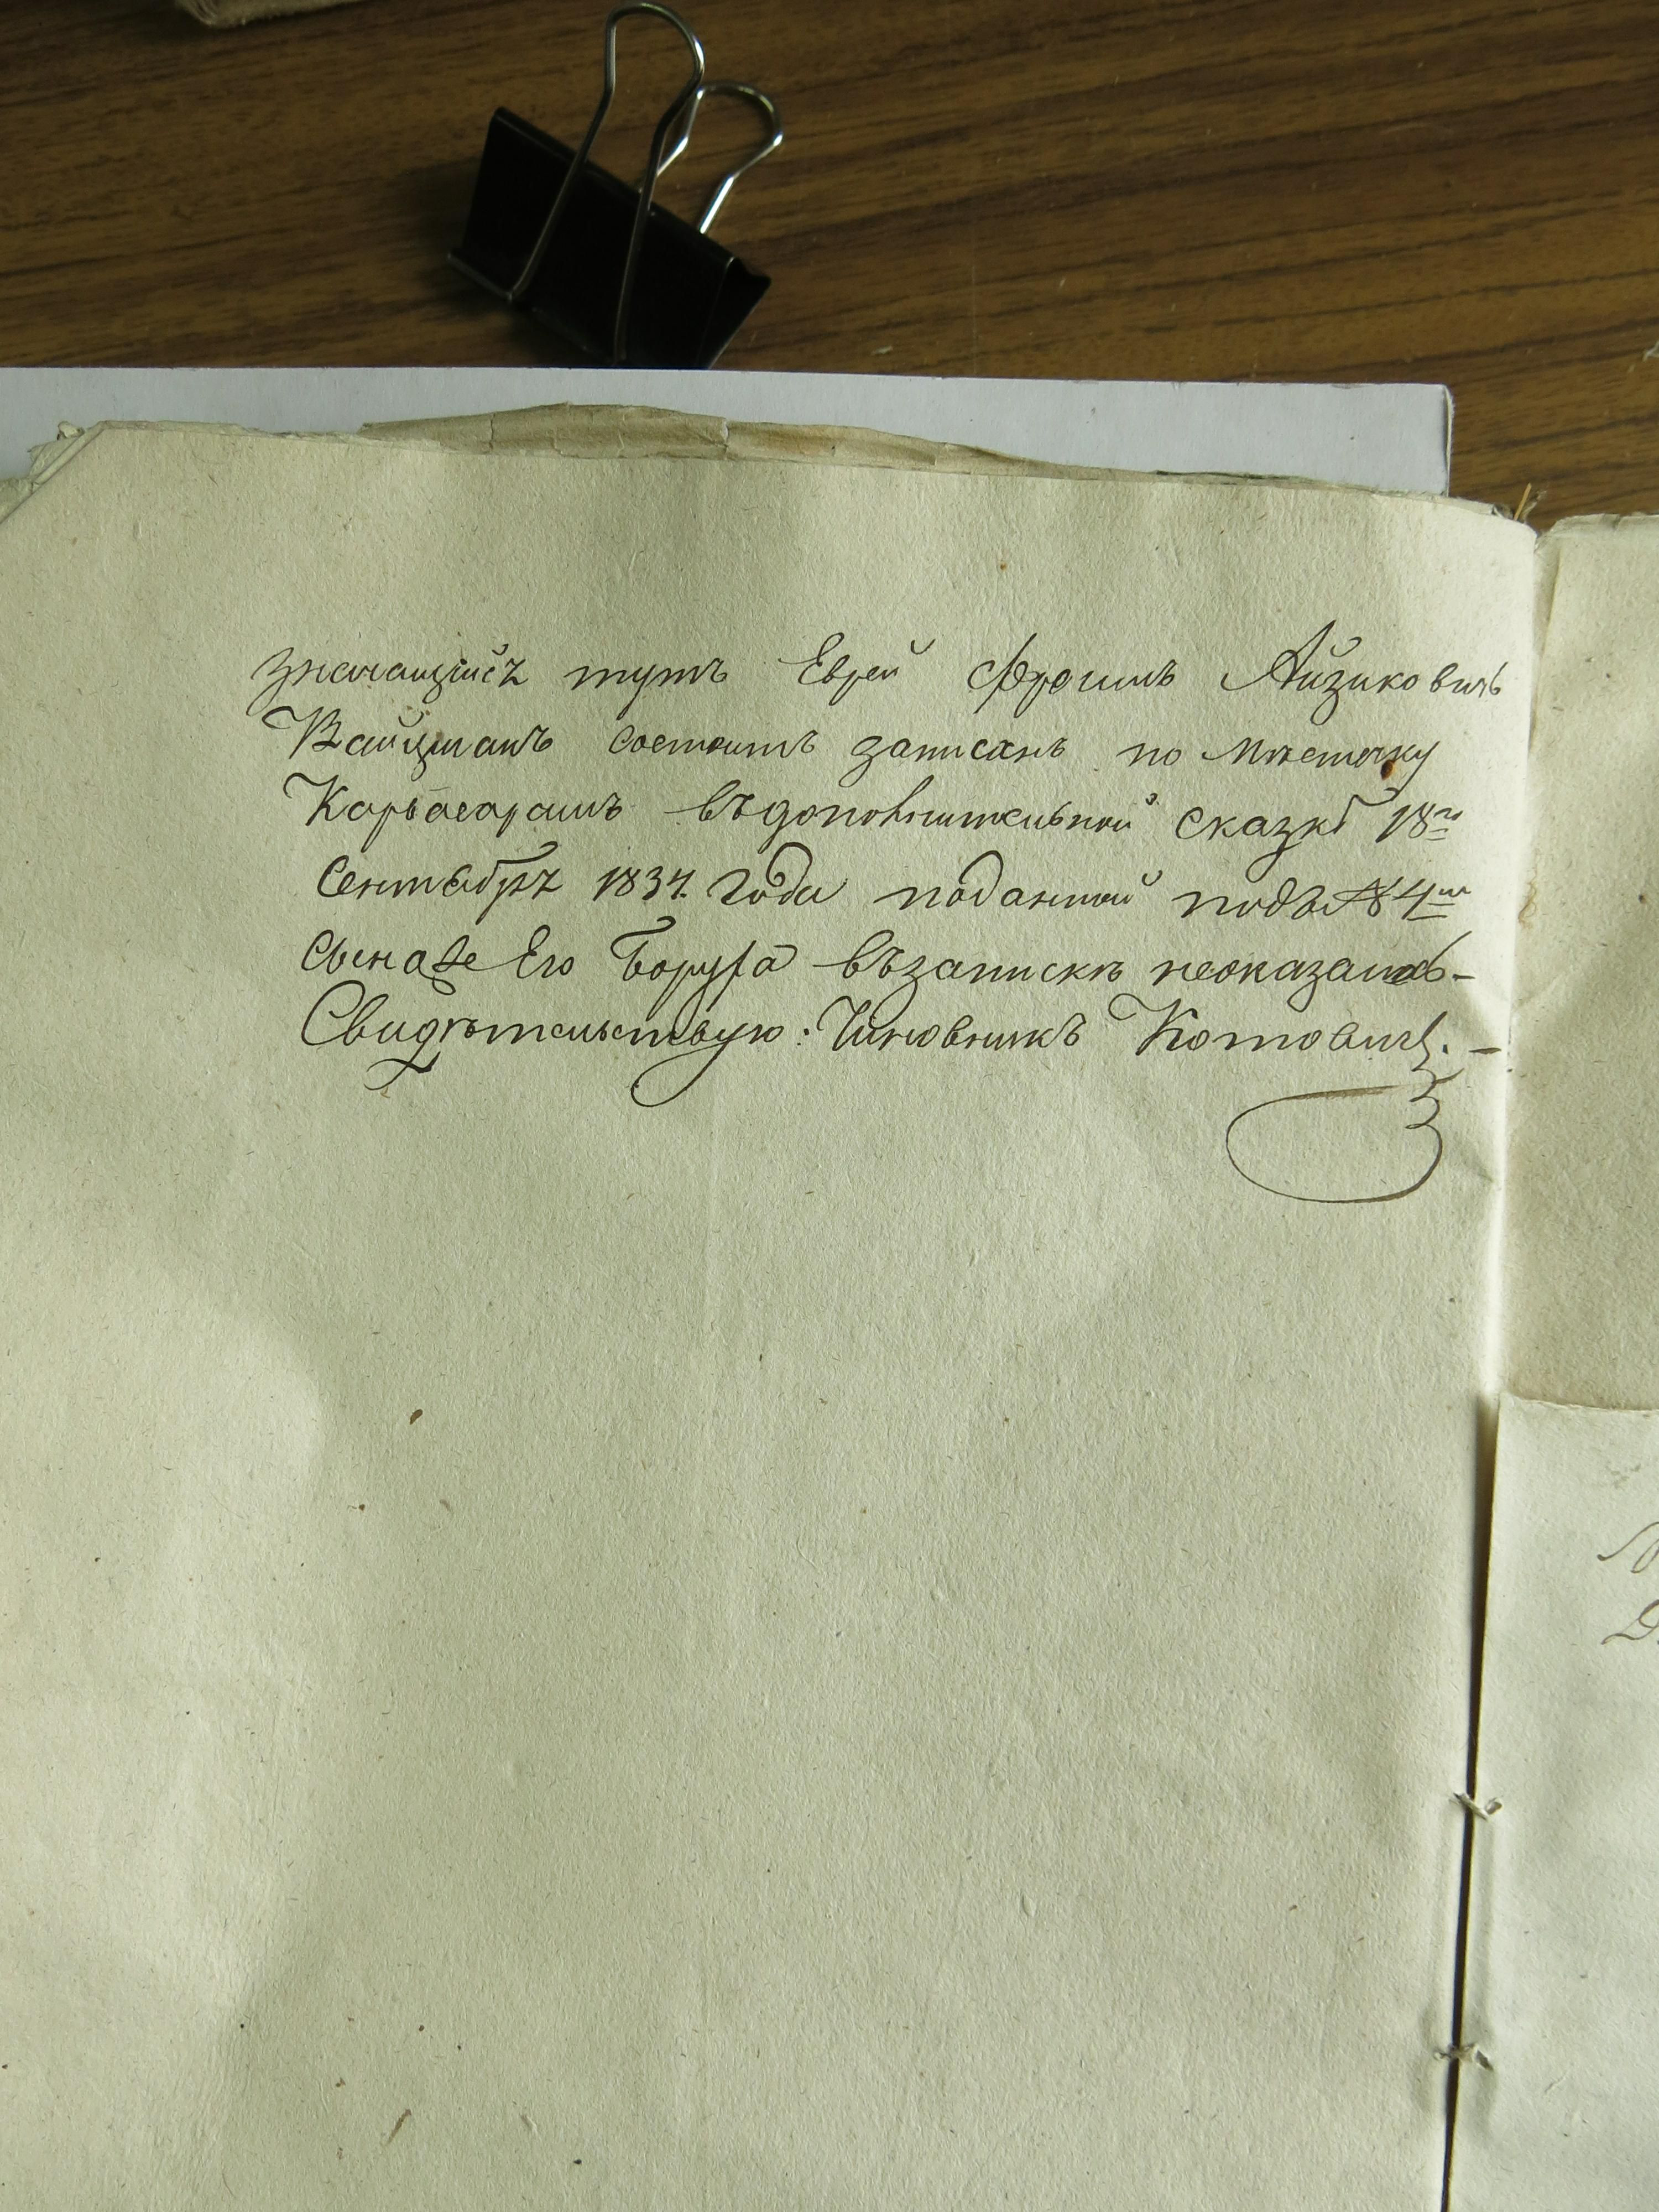 значащійся тутъ Еврей Фроимъ Айзиковичъ
Вайцманъ состоитъ записанъ по мѣстечку
въдополнительной сказкѣ 18го
Сентября года поданной подъ № 4мъ
Сынаже Его Боруха възапискѣ неоказалось-
Свидѣтельствую: Чиновникъ Котовичъ. -